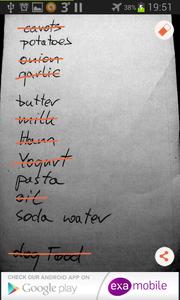 3 38% 19:51
carots
potatoes
onion
garlic
butter
milk
Ham
Yogurt
pasta
oil
soda water
dog Food
CHECK OUR ANDROID APP ON
Google play
exa mobile